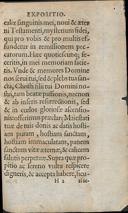 EXPOSITIO.
calix sanguinis mei, noui & æter
ni Testamenti, mysterium fidei,
qui pro vobis & pro multis ef-
fundetur in remissionem pec-
catorum. Hæc quotiescunq; fe-
ceritis, in mei memoriam facie-
tis. Vnde & memores Domine
nos serui tui, sed & plebs tua san-
cta, Christi filij tui Domini no-
stri, tam beatæ passionis, necnon
& ab inferis resurrectionis, sed
& in cœlos gloriosæ ascensio-
nis: offerimus præclaræ Maiestati
tuæ de tuis donis ac datis hosti-
am puram, hostiam sanctam,
hostiam immaculatam, panem
sanctum vitæ æternæ, & calicem
salutis perpetuæ. Supra quæ pro-
pitio ac sereno vultu respicere
digneris, & accepta habere, sicu-
H 2